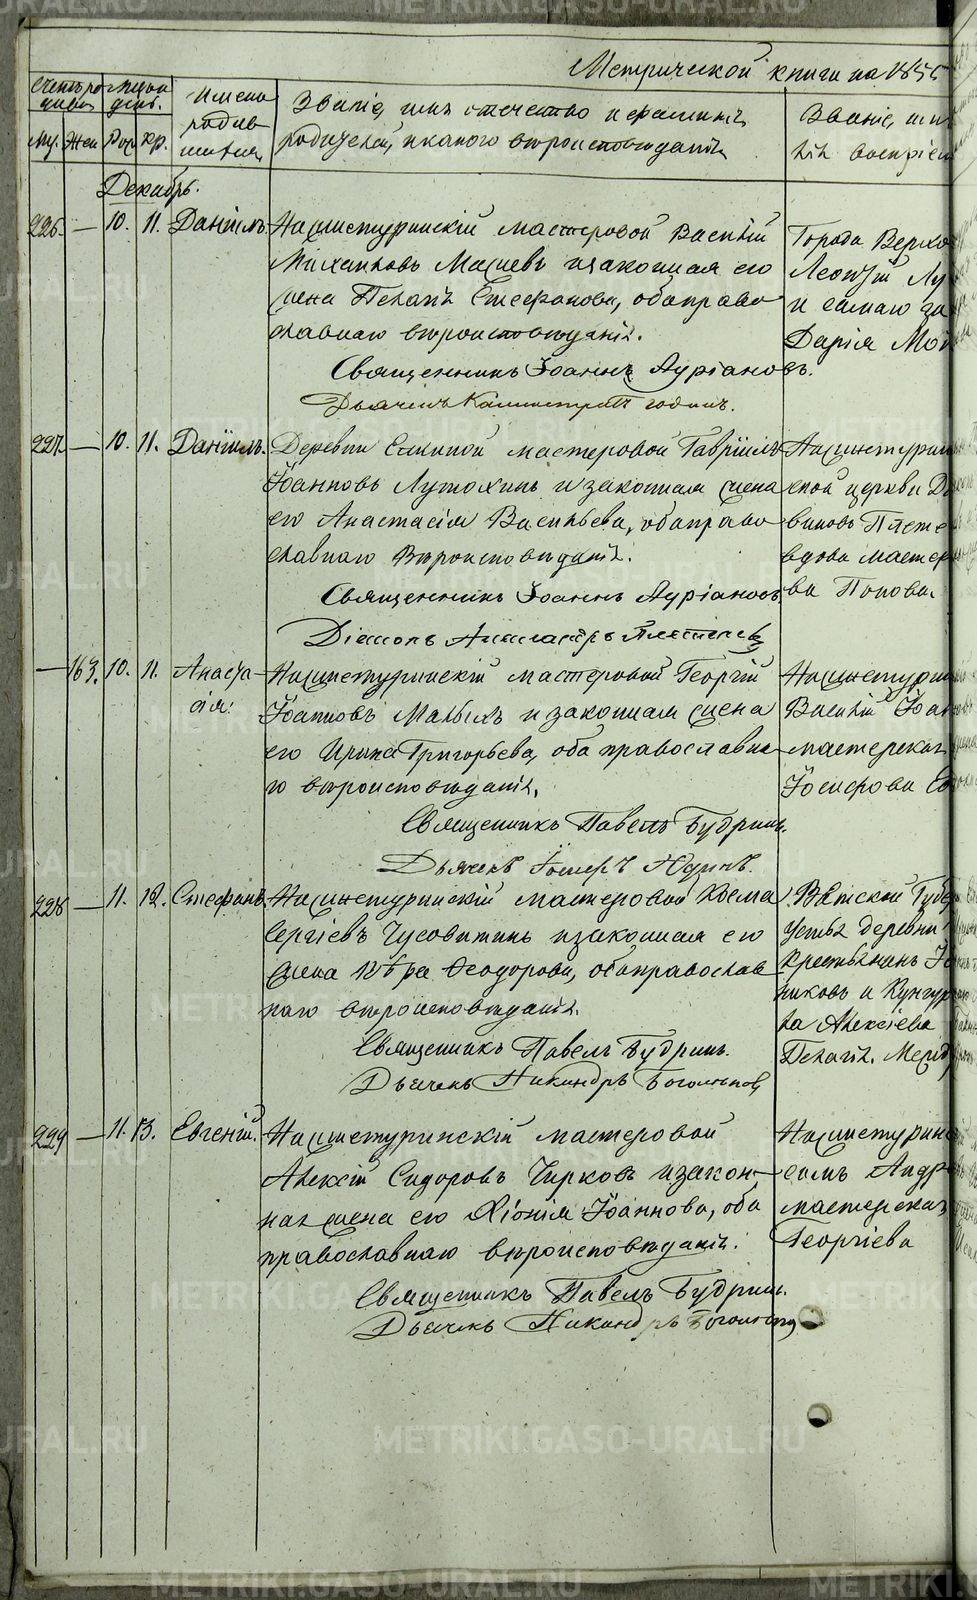 METRIKI.GASO-URAL.RU
Метрической книги на 185
Счетъ родившихся
Месяцъ день.
Имена родившихся
Званіе, имя отечество и фамилія
родителей, и какого вѣроисповѣданія
Званіе, имя
воспріем
Му. Жен Рож. Кр.
Декабрь.
226. — 10. 11. Даніилъ.
Нижнетуринскій мастеровой Василій
Михаиловъ Мазиевъ и законная его
жена Пелагія Стефанова, оба право
славнаго вѣроисповѣданія.
Священникъ Іоаннъ Адріановъ.
Дьячекъ Калистратъ Юдинъ.
Города Верхо
Леонтій Лу
и
Дарія Мои
227. — 10. 11. Даніилъ.
Деревни Елкиной мастеровой Гавріилъ
Іоанновъ Лутохинъ и законная жена
его Анастасія Васильева, оба право
славнаго Вѣроисповѣданія.
Священникъ Іоаннъ Адріановъ.
Діаконъ
Нижнетурин
ской церкви Д
вдова мастер
ва Попова.
— 163. 10. 11. Анаста-
сія.
Нижнетуринскій мастеровой Георгій
Іоанновъ Малыхъ и законная жена
его Ирина Григорьева, оба православна-
го вѣроисповѣданія.
Священникъ Павелъ Будринъ.
Дьячекъ Іосифъ Юдинъ.
Нижнетурин
Василій Іоан
мастерская
Іосифова Ев
228 — 11. 12. Стефанъ.
Нижнетуринскій мастеровой Козма
Сергіевъ Чусовитинъ и законная его
жена Вѣра Ѳеодорова, оба православ
наго вѣроисповѣданія.
Священникъ Павелъ Будринъ.
Дьячекъ Никандръ Боголѣповъ
Вятской Губер
деревни
Крестьянинъ
никовъ и Кунгур
ка Алексіева
Пелагія.
229 — 11. 13. Евгеній.
Нижнетуринскій мастеровой
Алексій Сидоровъ Чирковъ и закон-
ная жена его Хіонія Іоаннова, оба
православнаго вѣроисповѣданія.
Священникъ Павелъ Будринъ.
Дьячекъ Никандръ Боголѣповъ
Нижнетурин
Андр
мастерская
Георгіева
METRIKI.GASO-URAL.RU